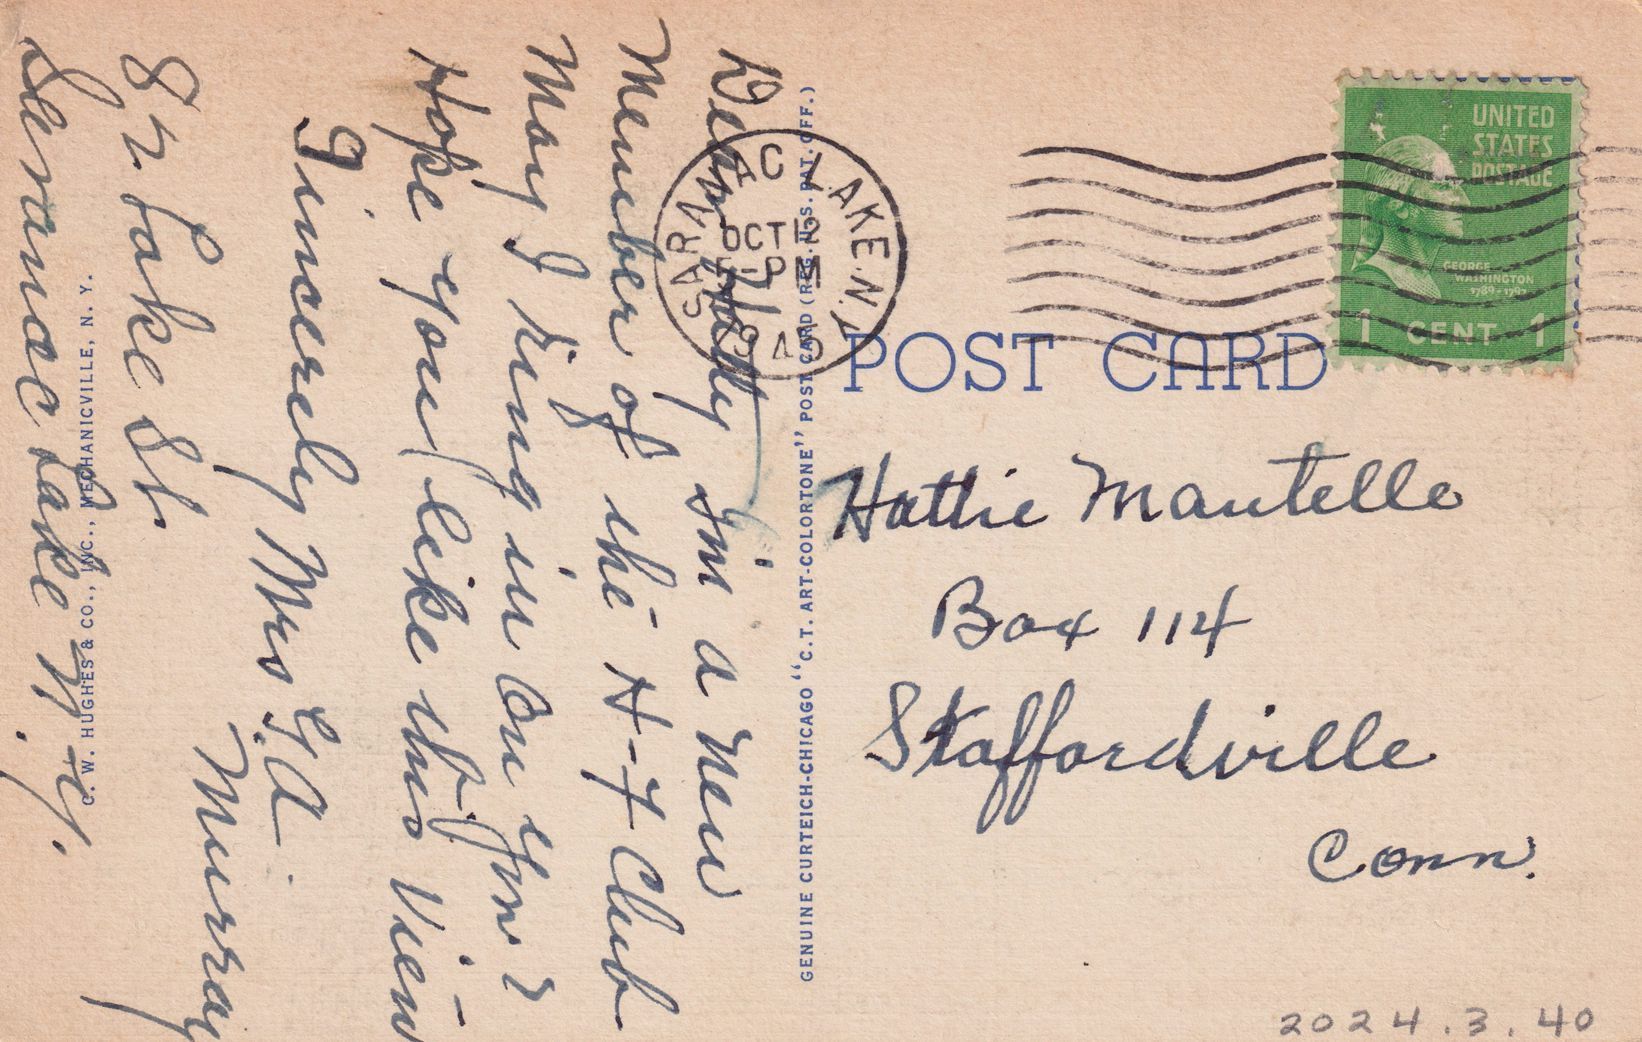 Dear Lady I'm a New
Member of the H-7 Club
May I Ring in on you?
Hope you like this View
Sincerely Mrs G.A.
Murray
82 Lake St.
Saranac Lake N.Y.
C. W. HUGHES & CO., INC., MECHANICVILLE, N. Y.
GENUINE CURTEICH-CHICAGO "C.T. ART-COLORTONE" POST CARD (REG. U.S. PAT. OFF.)
SARANAC LAKE. N.Y.
OCT
PM
UNITED
STATES
POSTAGE
GEORGE
WASHINGTON
1789-1797
1 CENT 1
POST CARD
Hattie Mantelle
Box 114
Staffordville
Conn.
2024.3.40